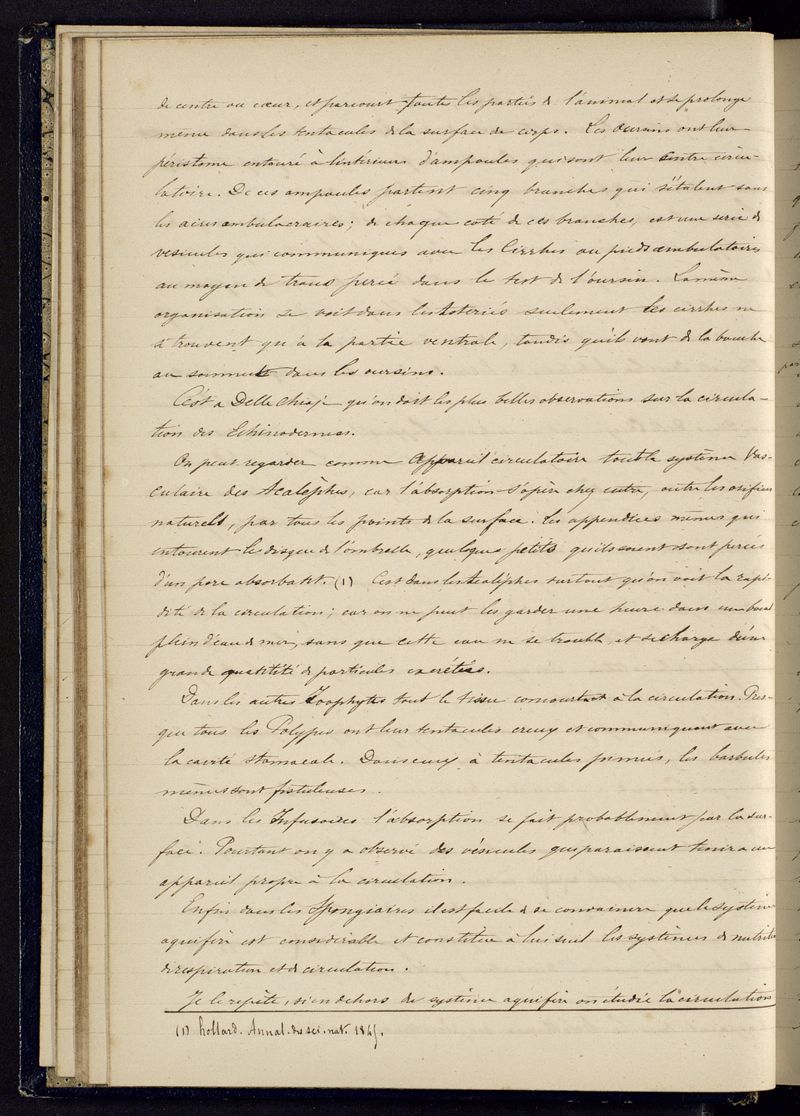 de centre ou cœur, et parcourt toutes les parties de l'animal et se prolonge
même dans les tentacules de la surface du corps. Les Oursins ont leur
péristome entouré à l'intérieur d'ampoules qui sont leur centre circu-
latoire. De ces ampoules partent cinq branches qui s'étalent sous
les aires ambulacraires; de chaque coté de ces branches, est une serie de
vesicules qui communiques avec les Cirrhes ou pieds ambulatoires
au moyen de trous percé dans le test de l'oursin. La même
organisation se voit dans les Asteries seulement les cirrhes ne
se trouvent qu'à la partie ventrale, tandis qu'ils vont de la bouche
au sommet dans les oursins.
C'est a Delle Chiaje qu'on doit les plus belles observations sur la circula-
tion des Echinodermes.
On peut regarder comme appareil circulatoire tout le système Vas-
culaire des Acalèphes, car l'absorption s'opère chez eux, outre les orifices
naturels, par tous les points de la surface. Les appendices mêmes qui
entourent le disque de l'ombrelle, quelques petits qu'ils soient sont percés
d'un pore absorbant. (1) C'est dans les Acalèphes surtout qu'on voit la rapi-
dité de la circulation; car on ne peut les garder une heure dans un bocal
plein d'eau de mer, sans que cette eau ne se trouble et se charge d'une
grande quantité de particules excrétées.
Dans les autres Zoophytes tout le tissu concourt à la circulation. Pres-
que tous les Polypes ont leur tentacules creux et communiquent avec
la cavité stomacale. Dans ceux à tentacules pennés, les barbules
mêmes sont fistuleuses.
Dans les Infusoires l'absorption se fait probablement par la sur-
face. Pourtant on y a observé des vésicules qui paraissent tenir a un
appareil propre à la circulation.
Enfin dans les Spongiaires il est facile de se convaincre que le système
aquifère est considérable et constitue à lui seul les systèmes de nutrition
de respiration et de circulation.
Je le répète, si en dehors du système aquifère on étudie la circulation
(1) hollard. Annal. des sci. nat. 1845.